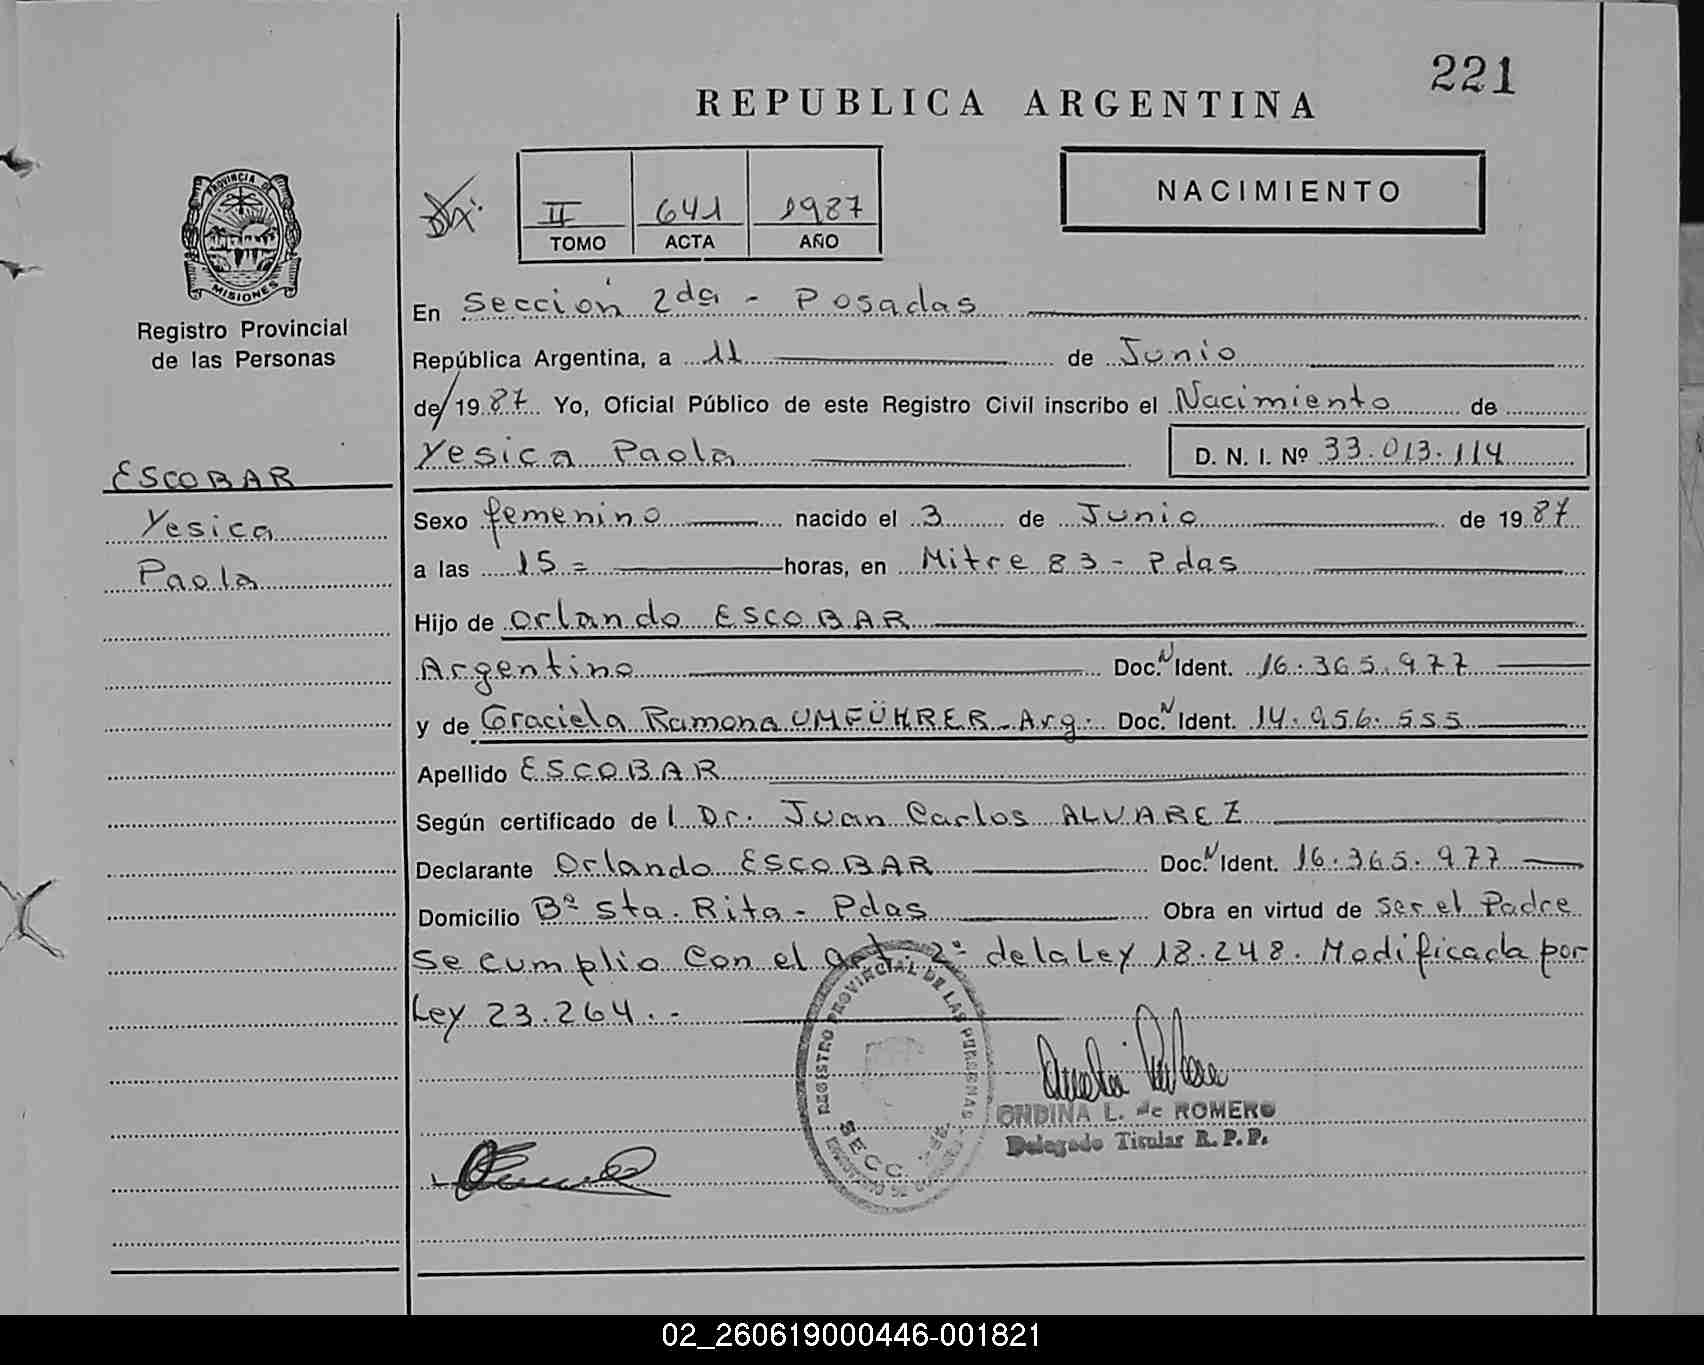 221
REPUBLICA ARGENTINA
II 641 1987
TOMO ACTA AÑO
NACIMIENTO
PROVINCIA DE
MISIONES
Registro Provincial
de las Personas
ESCOBAR
Yesica
Paola
En Sección 2da - Posadas
República Argentina, a 11 de Junio
de/1987 Yo, Oficial Público de este Registro Civil inscribo el Nacimiento de
Yesica Paola D. N. I. Nº 33.013.114
Sexo femenino nacido el 3 de Junio de 1987
a las 15= horas, en Mitre 83 - Pdas
Hijo de Orlando ESCOBAR
Argentino Doc. N Ident. 16.365.977
y de Graciela Ramona UMFÜHRER - Arg. Doc. N Ident. 14.956.555
Apellido ESCOBAR
Según certificado del Dr. Juan Carlos ALVAREZ
Declarante Orlando ESCOBAR Doc. N Ident. 16.365.977
Domicilio Bº Sta. Rita - Pdas Obra en virtud de ser el Padre
Se cumplio con el art. 2º de la Ley 18.248. Modificada por
Ley 23.264.-
REGISTRO PROVINCIAL DE LAS PERSONAS
SECC.
ONDINA L. de ROMERO
Delegado Titular R. P. P.
02_260619000446-001821